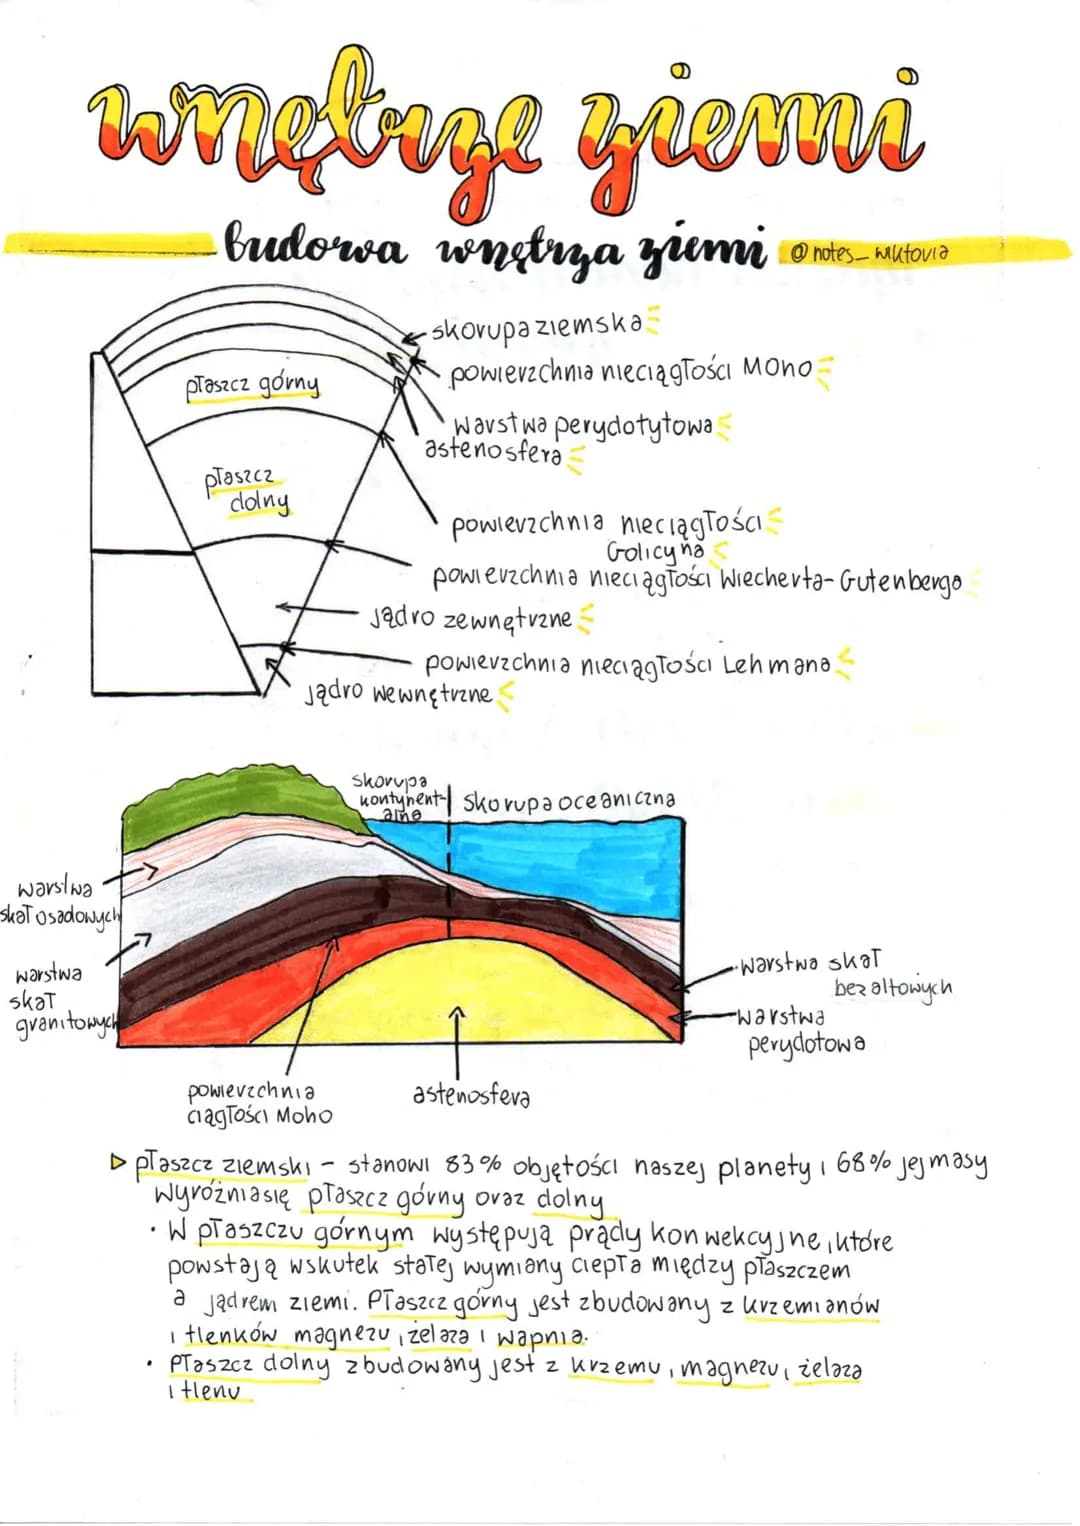 wnętrze ziemi
budowa wnętrza ziemi @notes_wiktoria
skorupa ziemska
powierzchnia nieciągłości Moho
płaszcz górny
warstwa perydotytowa
astenosfera
płaszcz
dolny
powierzchnia nieciągłości
Golicyna
powierzchnia nieciągłości Wiecherta-Gutenberga
Jądro zewnętrzne
powierzchnia nieciągłości Lehmana
Jądro wewnętrzne
skorupa
kontynent-
alna
skorupa oceaniczna
warstwa
skał osadowych
warstwa
skał
granitowych
warstwa skał
bezaltowych
warstwa
perydotowa
powierzchnia
ciągłości Moho
astenosfera
płaszcz ziemski - stanowi 83% objętości naszej planety i 68% jej masy
wyróżnia się płaszcz górny oraz dolny
• W płaszczu górnym występują prądy konwekcyjne, które
powstają wskutek stałej wymiany ciepła między płaszczem
a jądrem ziemi. Płaszcz górny jest zbudowany z krzemianów
i tlenków magnezu, żelaza i wapnia.
• Płaszcz dolny zbudowany jest z krzemu, magnezu, żelaza
i tlenu